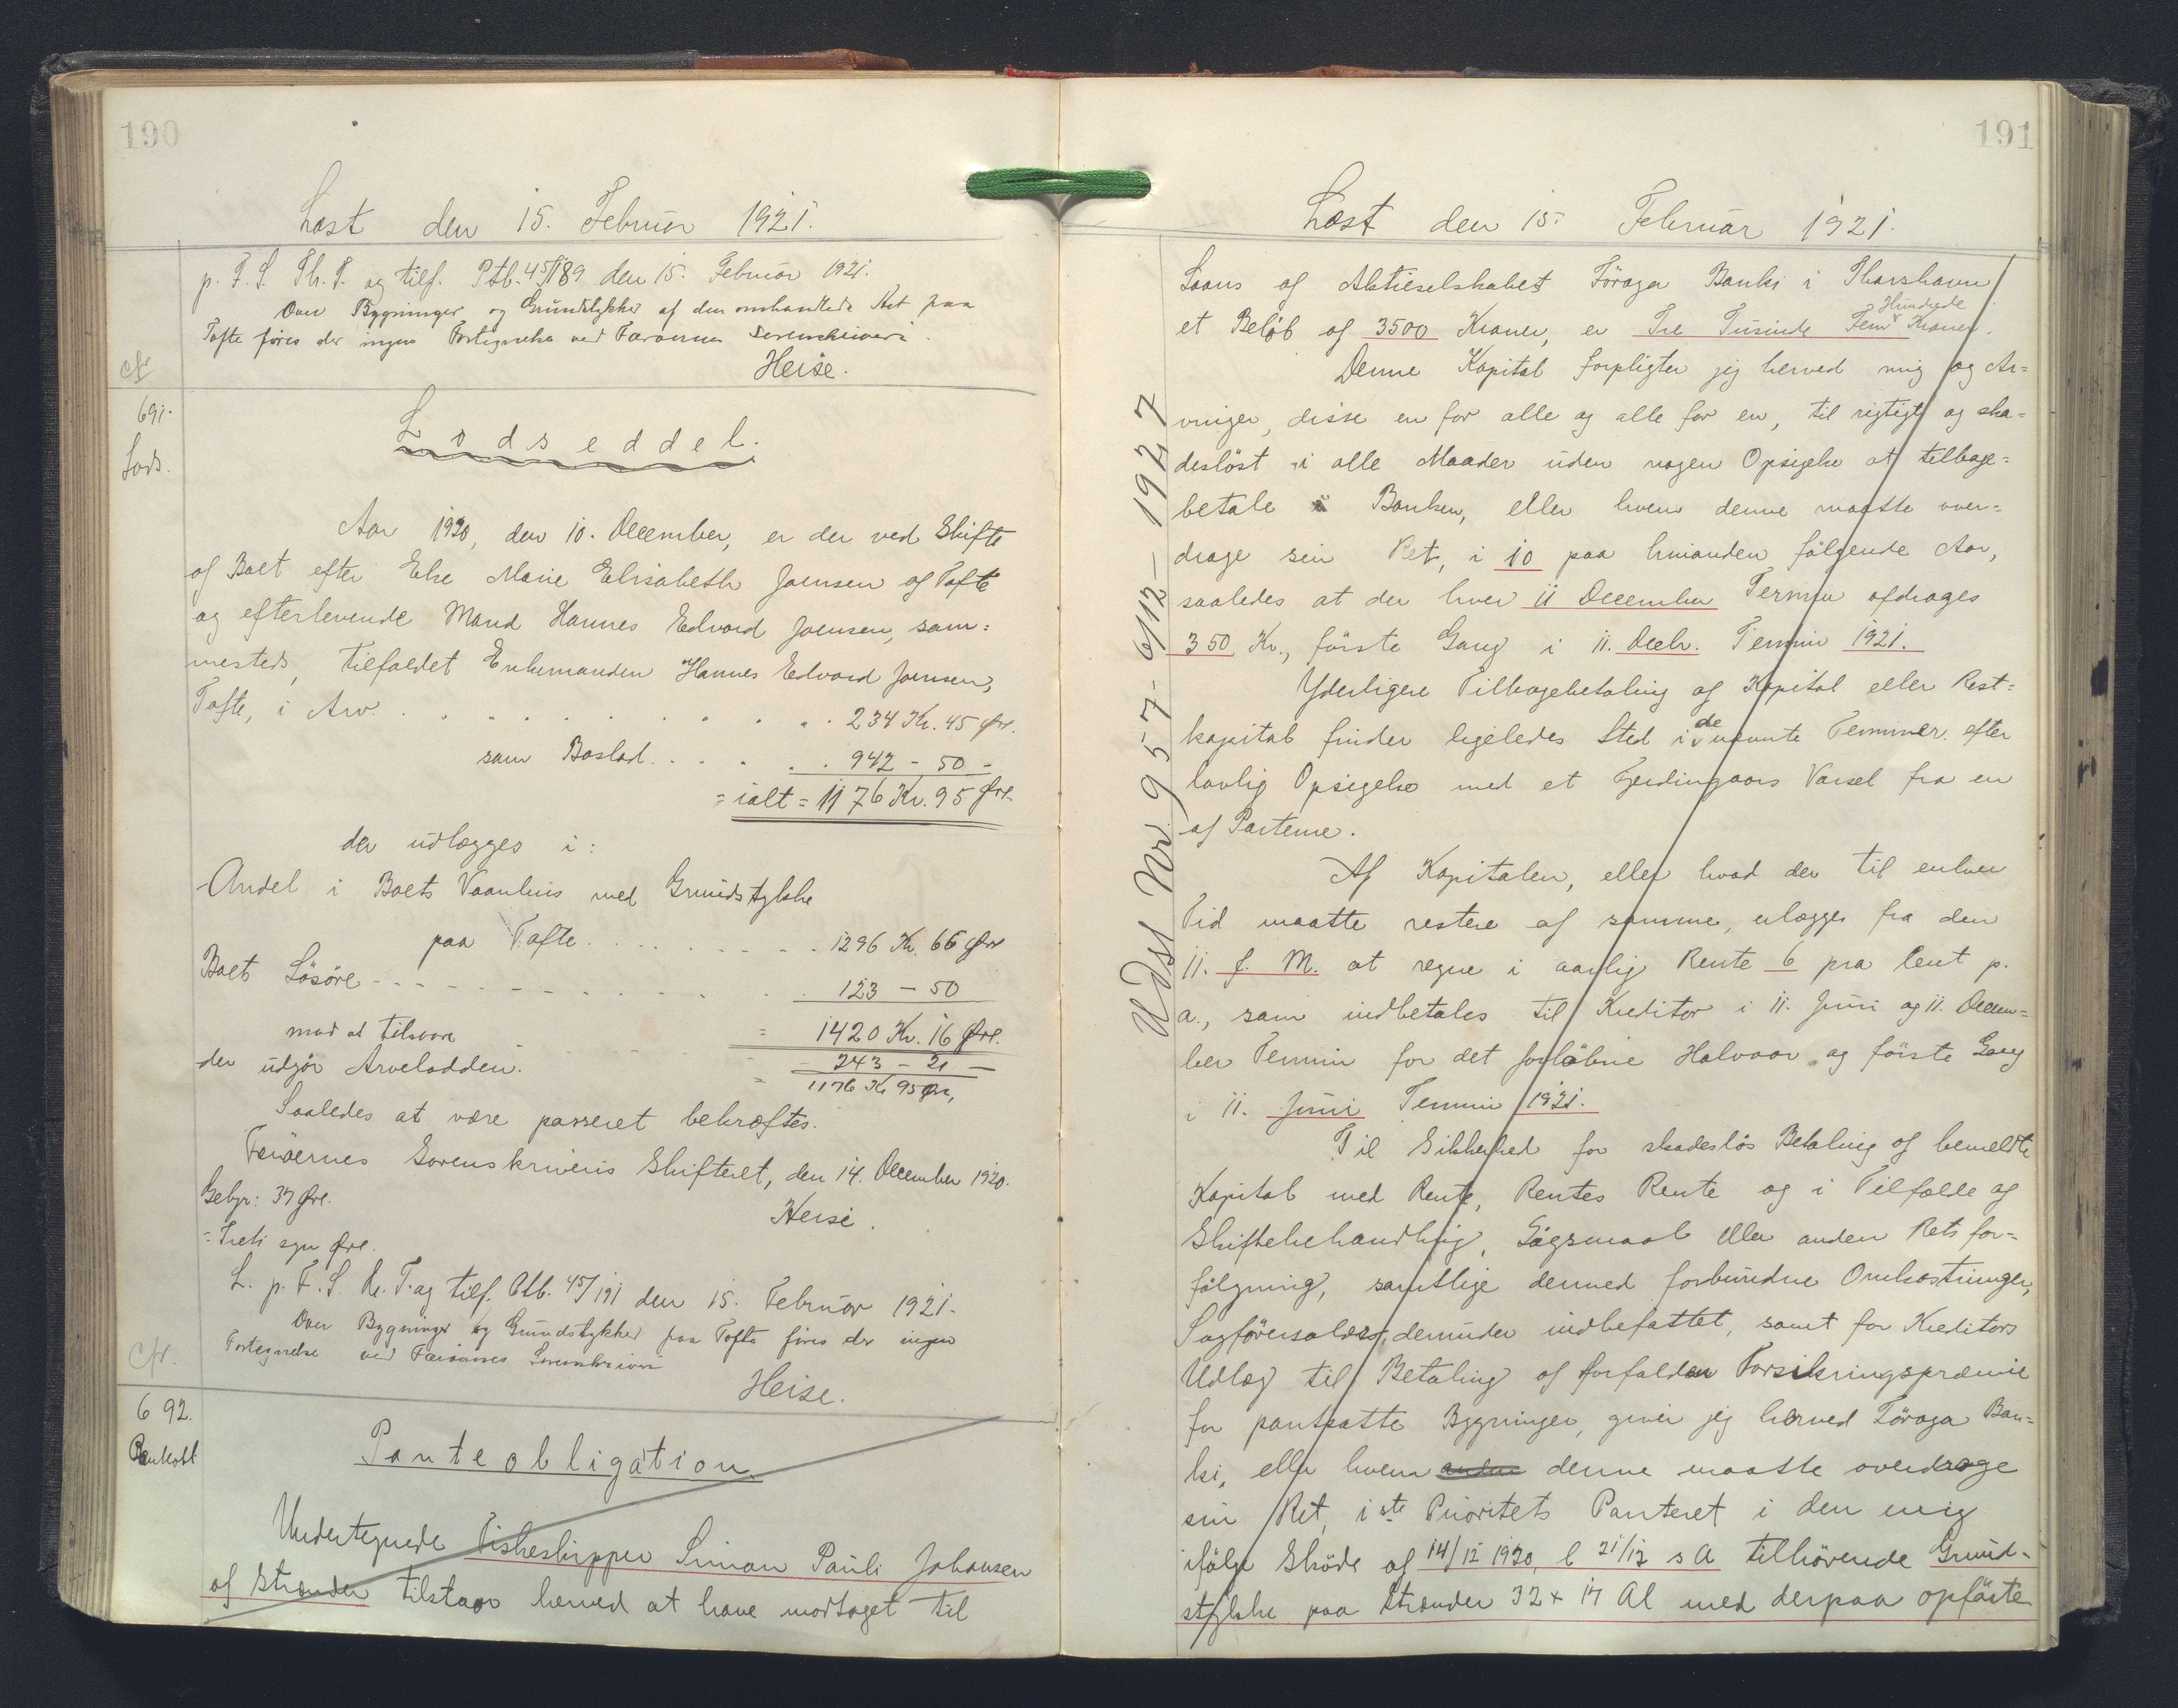 190
Læst den 15. Februar 1921.
p. F. S. Th. T. og tilf. Ptb. 45/189 den 15. Februar 1921.
Over Bygninger og Grundstykker af den omhandlede Art paa
Tofte føres der ingen Fortegnelse ved Færøernes Sorenskriveri.
Heise.
cfr
691.
Lods.
Lodseddel.
Aar 1920, den 10. December, er der ved Skifte
af Boet efter Else Marie Elisabeth Joensen af Tofte
og efterlevende Mand Hannes Edvard Joensen, sam=
mesteds, tilfaldet Enkemanden Hannes Edvard Joensen,
Tofte, i Arv. . . . . . . . . . . . 234 Kr. 45 Øre.
som Boslod. . . . . . 942 - 50 -
= ialt = 1176 Kr. 95 Øre.
der udlægges i:
Andel i Boets Vaanhus med Grundstykke
paa Tofte. . . . . . . . . . 1296 Kr. 66 Øre
Boets Løsøre - . . . . . . . . . . 123 - 50
= 1420 Kr. 16 Øre.
mod at tilsvare . . . . . . - 243 - 21 -
der udgør Arvelodden. = 1176 Kr 95 Øre,
Saaledes at være passeret bekræftes.
Færøernes Sorenskriveris Skifteret, den 14. December 1920.
Gebyr: 37 Øre. Heise.
= Treti syv Øre.
L. p. F. S. Kr. T. og tilf. Ptb. 45/191 den 15. Februar 1921.
Over Bygninger og Grundstykker paa Tofte føres der ingen
Fortegnelse ved Færøernes Sorenskriveri
Heise.
Cfr.
692.
Pantobl
Panteobligation.
Undertegnede Fiskeskipper Simon Pauli Johansen
af Strænder tilstaar herved at have modtaget til
191
Læst den 15. Februar 1921.
Laans af Aktieselskabet Föroya Banki i Thorshavn
et Beløb af 3500 Kroner, er Tre Tusinde Fem Hundrede Kroner.
Denne Kapital forpligter jeg herved mig og Ar=
vinger, disse en for alle og alle for en, til rigtigt og ska=
desløst i alle Maader uden nogen Opsigelse at tilbage=
betale Banken, eller hvem denne maatte over=
drage sin Ret, i 10 paa hinanden følgende Aar,
saaledes at der hver 11 December Termin afdrages
350 Kr., første Gang i 11. Decbr. Termin 1921.
Yderligere Tilbagebetaling af Kapital eller Rest=
kapital finder ligeledes Sted i de nævnte Terminer efter
lovlig Opsigelse med et Fjerdingaars Varsel fra en
af Parterne.
Af Kapitalen, eller hvad der til enhver
Tid maatte restere af samme, erlægges fra den
11. f. M. at regne i aarlig Rente 6 pro Cent p.
a., som indbetales til Kreditor i 11. Juni og 11. Decem=
ber Termin for det forløbne Halvaar og første Gang
i 11. Juni Termin 1921.
Til Sikkerhed for skadesløs Betaling af bemeldte
Kapital med Rente, Rentes Rente og i Tilfælde af
Skiftebehandling, Søgsmaal eller anden Rets for=
følgning, samtlige dermed forbundne Omkostninger,
Sagførersalær, derunder indbefattet, samt for Kreditors
Udlæg til Betaling af forfalden Forsikringspræmie
for pantsatte Bygninger, giver jeg herved Föroya Ban=
ki, eller hvem denne maatte overdrage
sin Ret, 1ste Prioritets Panteret i den mig
ifølge Skøde af 14/12 1920, l 21/12 s A tilhørende Grund-
stykke paa Strænder 32 x 17 Al med derpaa opførte
Udsl Nr 957 - 6/12 - 1927